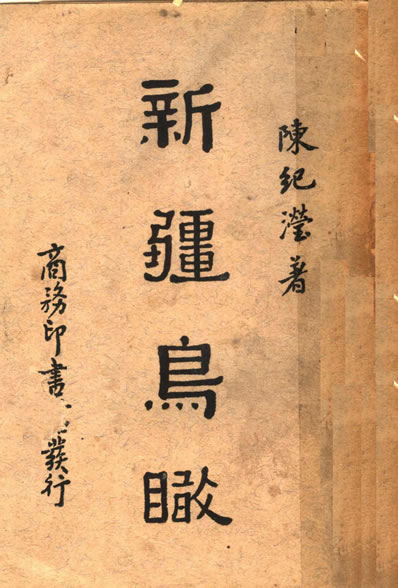 陳紀瀅著
新疆鳥瞰
商務印書發行